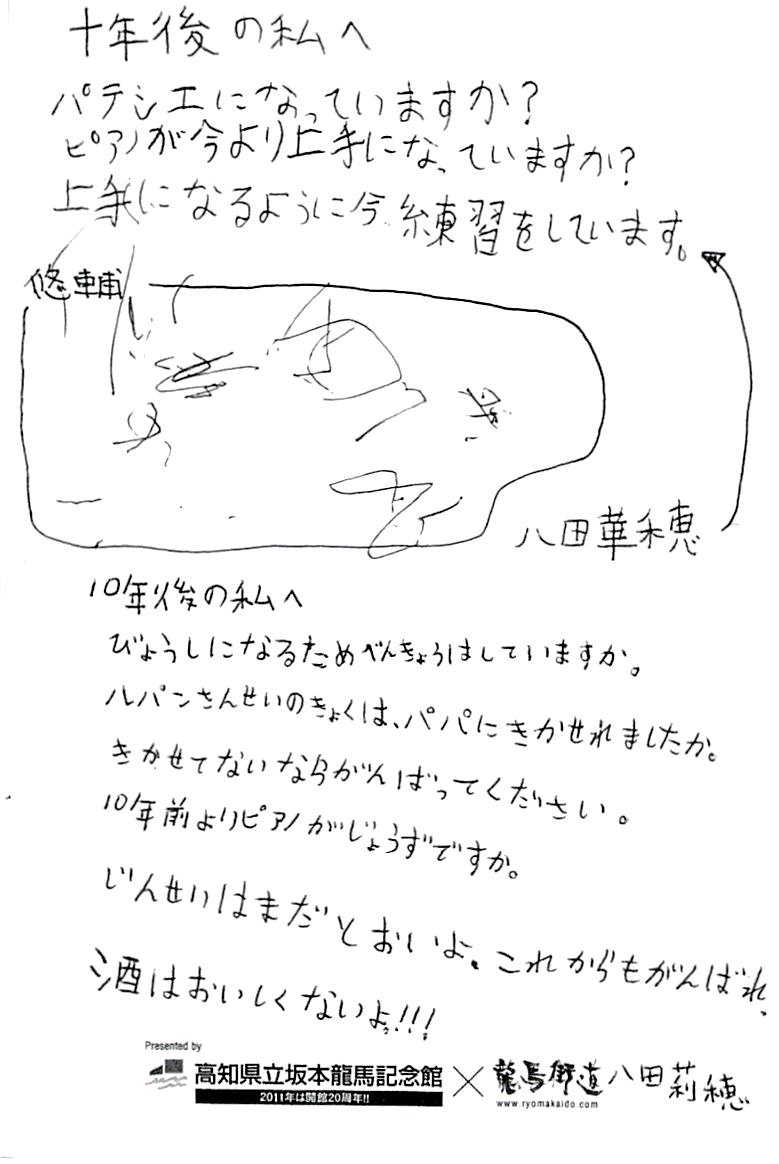 十年後の私へ
パテシエになっていますか?
ピアノが今より上手になっていますか?
上手になるように今練習をしています。
悠輔
八田華穂
10年後の私へ
びょうしになるためべんきょうはしていますか。
ルパンさんせいのきょくは、パパにきかせれましたか。
きかせてないならがんばってください。
10年前よりピアノがじょうずですか。
じんせいはまだとおいよ。これからもがんばれ、
酒はおいしくないよ!!!
Presented by
高知県立坂本龍馬記念館×龍馬街道 八田莉穂
2011年は開館20周年!! www.ryomakaido.com